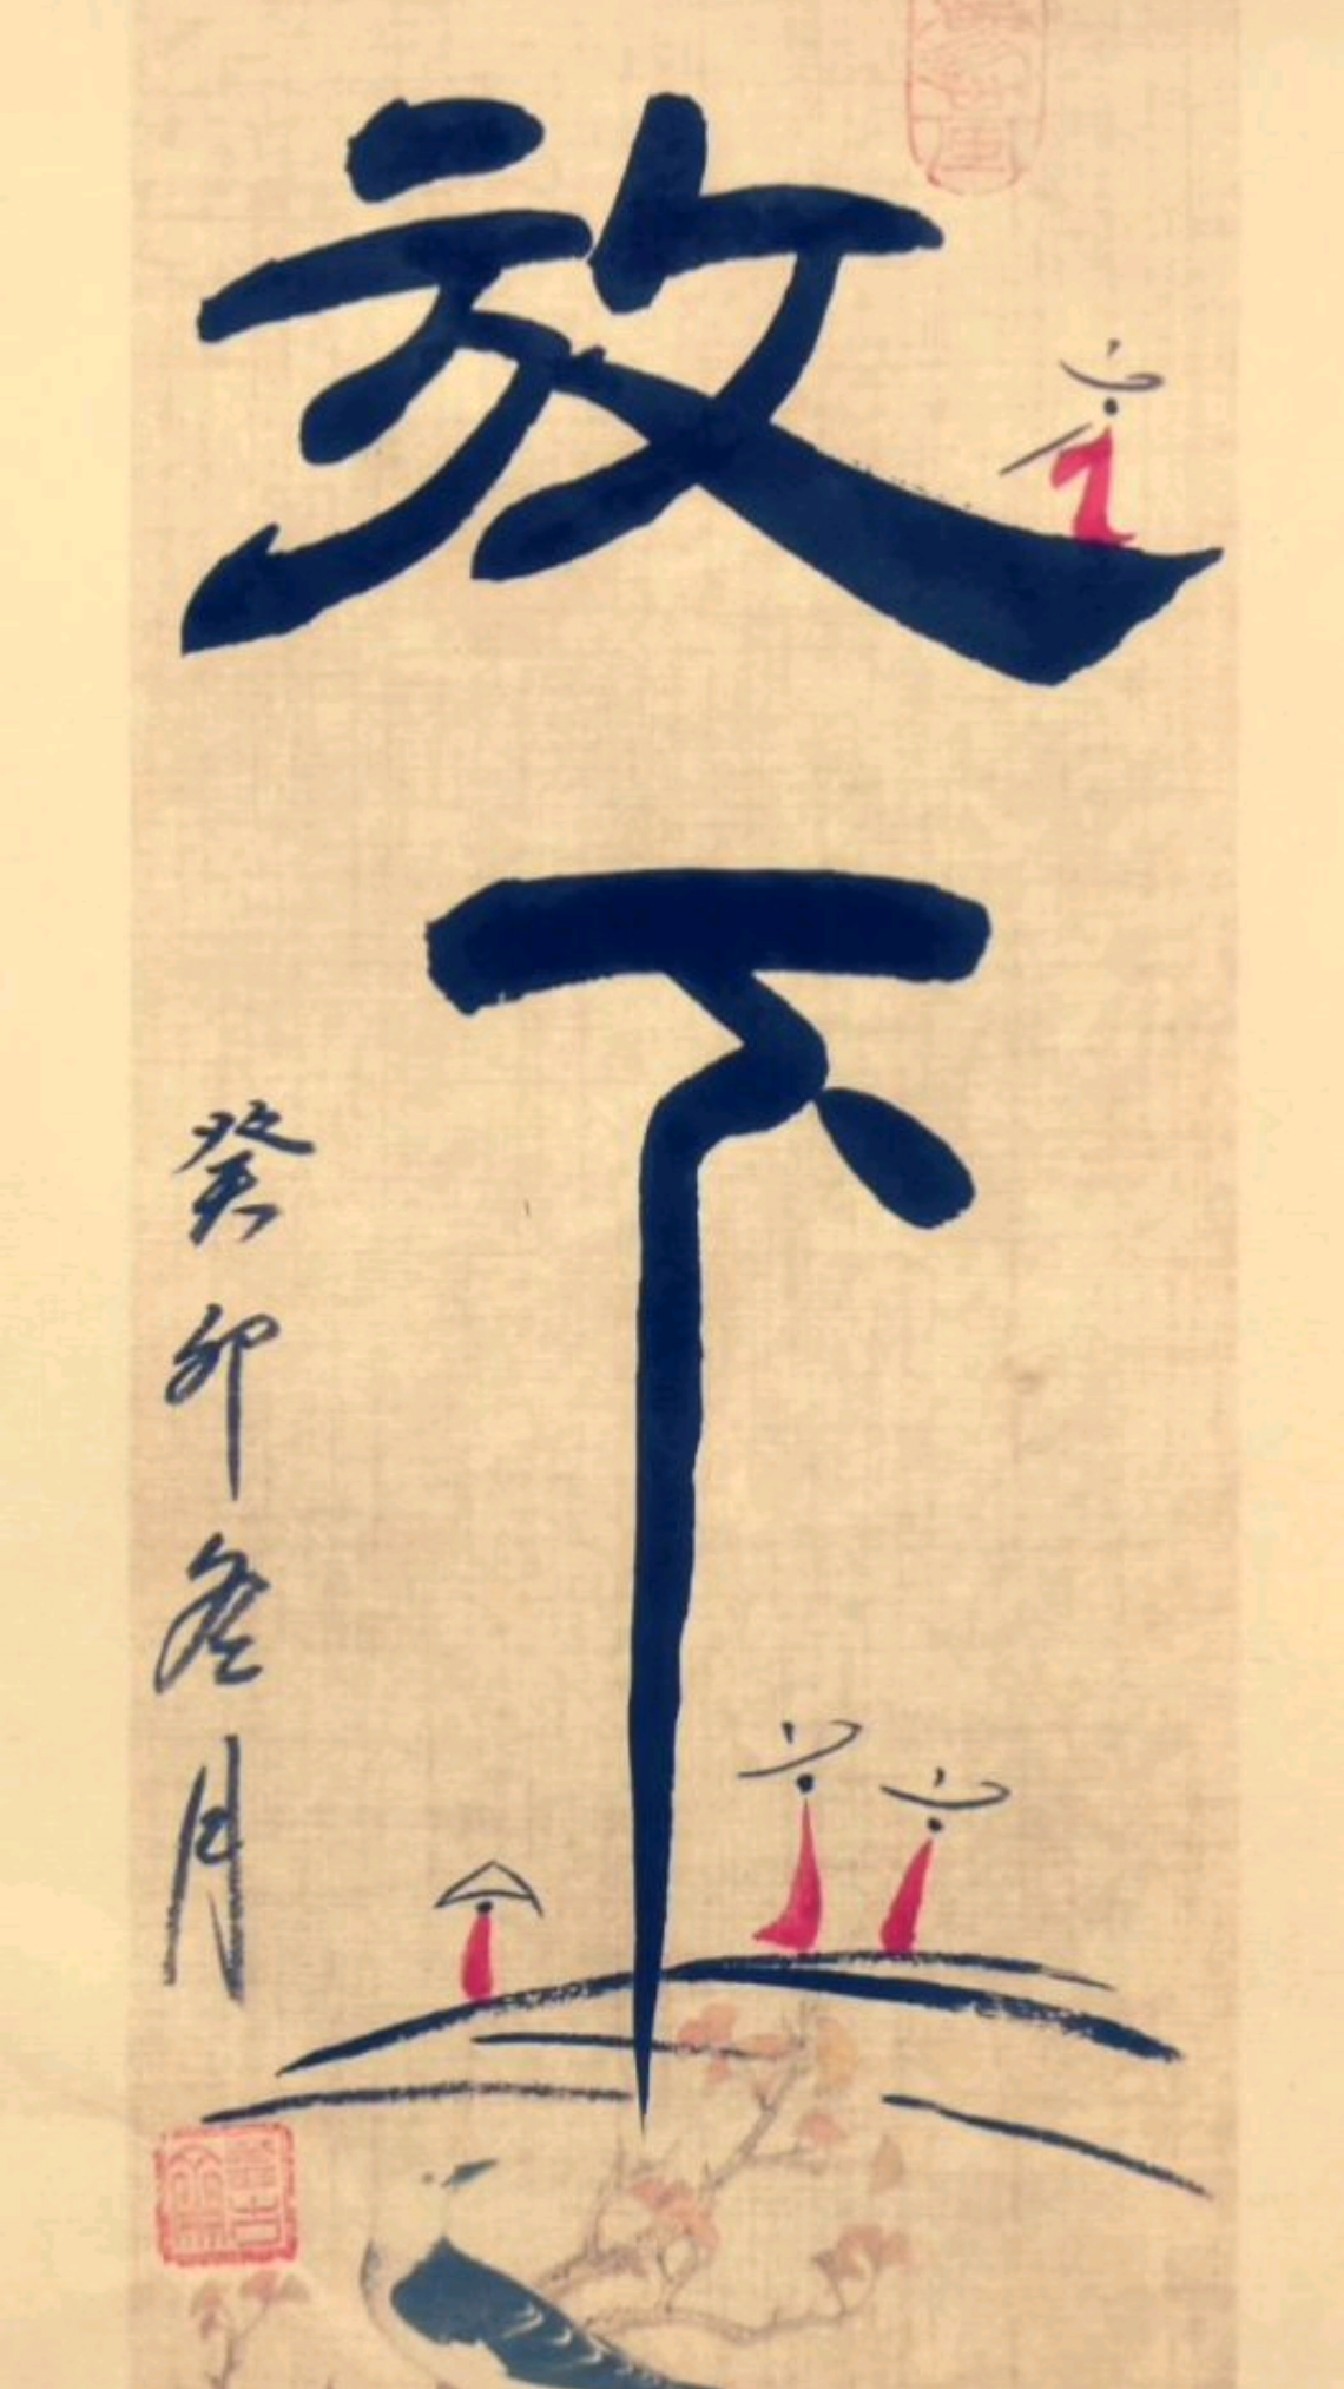 放下
癸卯冬月